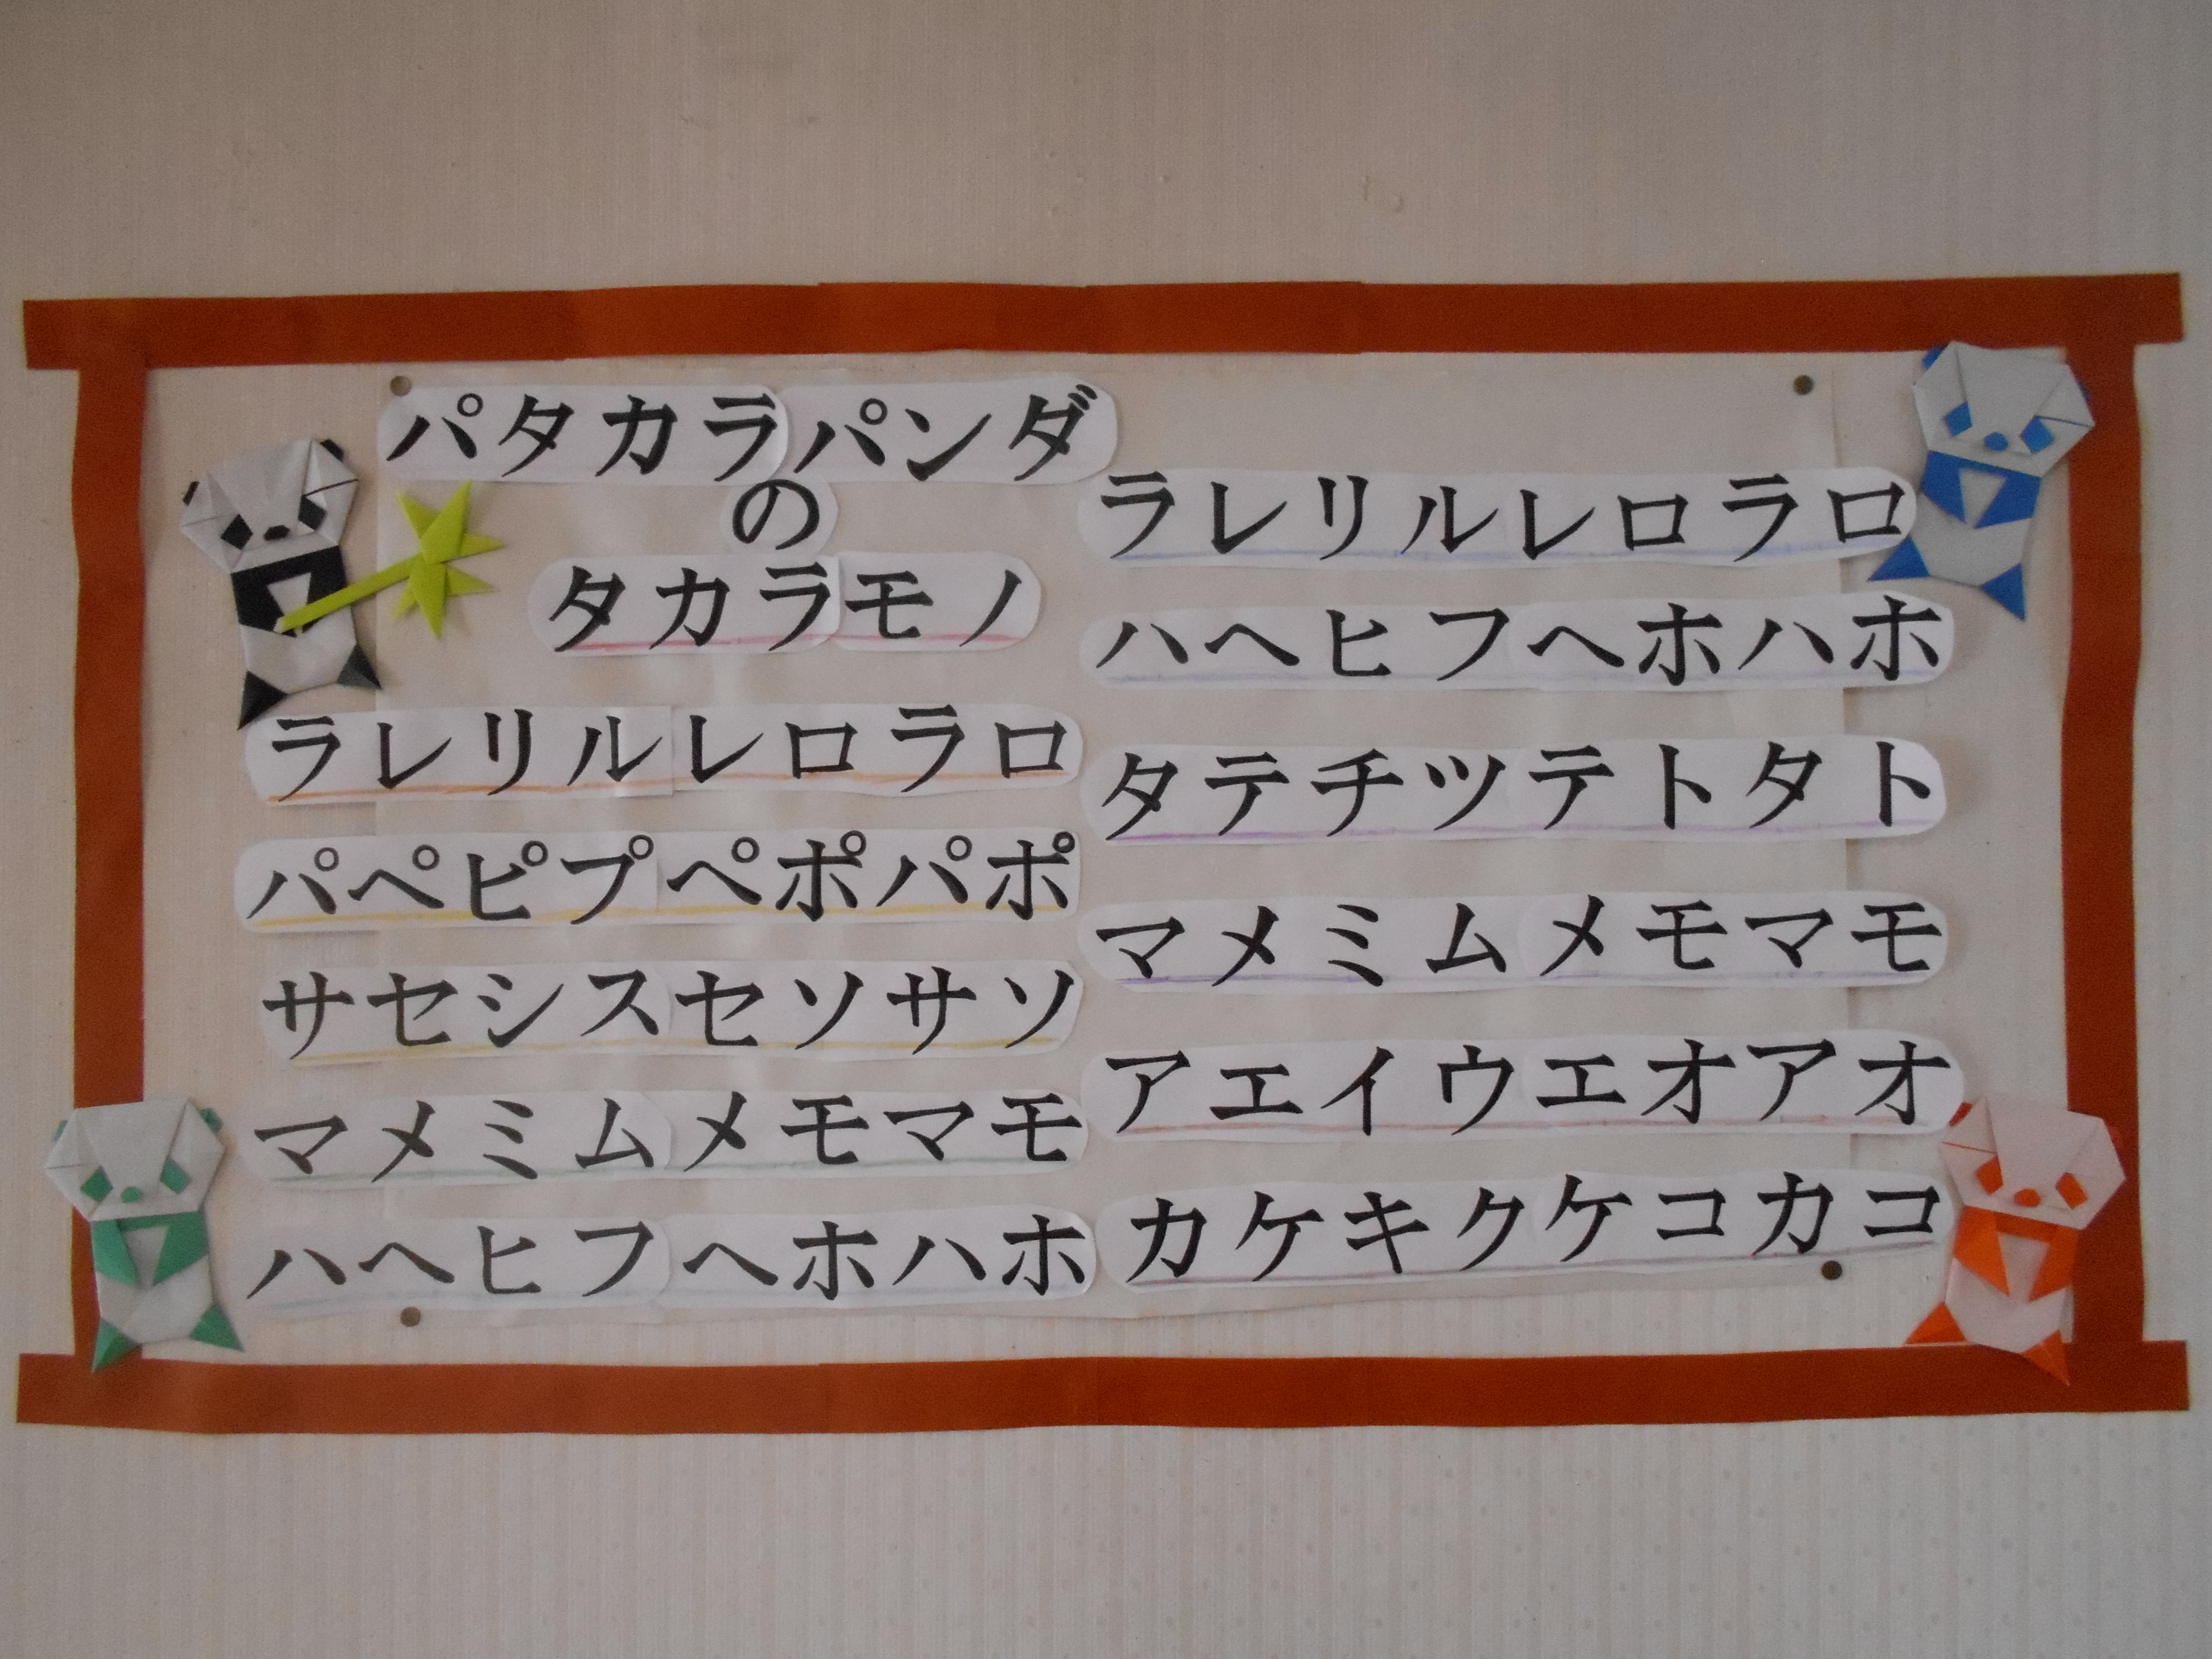 パタカラパンダ
の
タカラモノ
ラレリルレロラロ
パペピプペポパポ
サセシスセソサソ
マメミムメモマモ
ハヘヒフヘホハホ
ラレリルレロラロ
ハヘヒフヘホハホ
タテチツテトタト
マメミムメモマモ
アエイウエオアオ
カケキクケコカコ